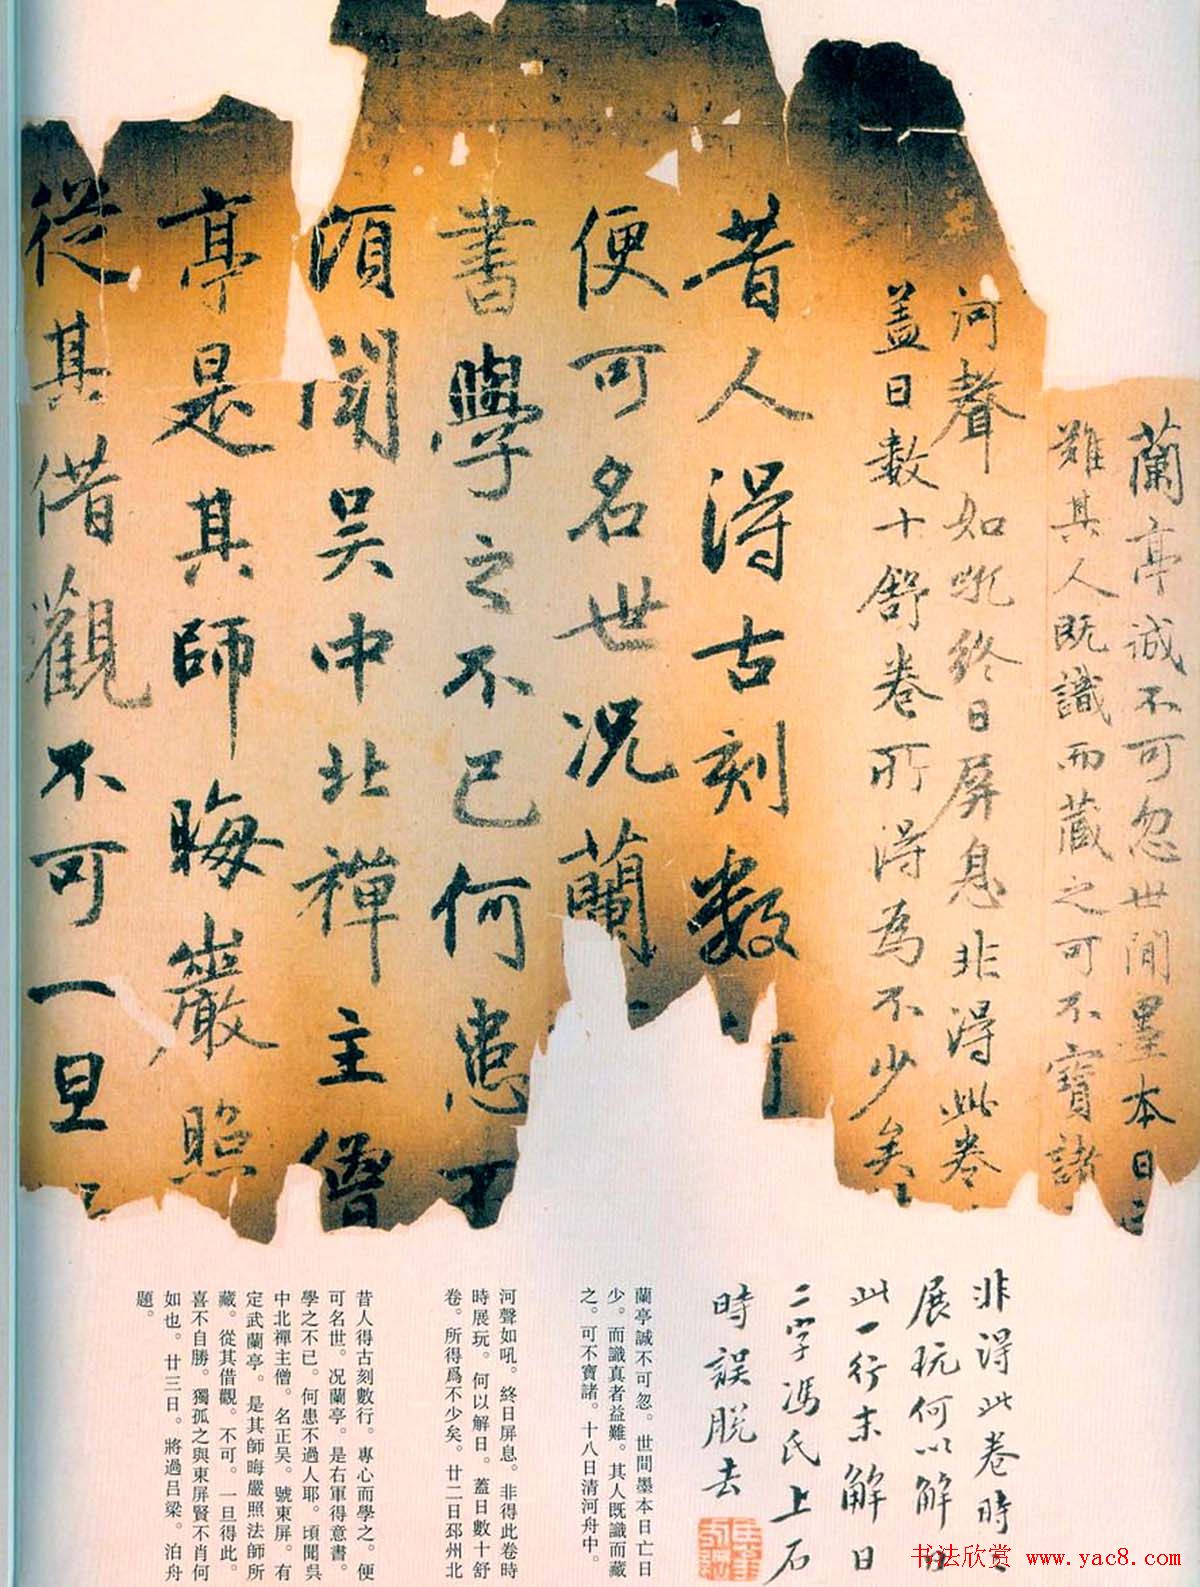 蘭亭誠不可忽世間墨本日
難其人既識而藏之可不寶諸
河聲如吼終日屏息非得此卷
蓋日數十舒卷所得為不少矣
昔人得古刻数
便可名世况蘭
書學之不已何患不
頃聞吴中北禪主僧
亭是其師晦巖照
從其借觀不可一旦
非得此卷時〻
展玩何以解日
此一行末解日
二字馮氏上石
時誤脱去
蘭亭誠不可忽。世間墨本日亡日
少。而識真者益難。其人既識而藏
之。可不寶諸。十八日清河舟中。
河聲如吼。終日屏息。非得此卷時
時展玩。何以解日。蓋日數十舒
卷。所得爲不少矣。廿二日邳州北
昔人得古刻數行。專心而學之。便
可名世。况蘭亭。是右軍得意書。
學之不已。何患不過人耶。頃聞吳
中北禪主僧。名正吴。號東屏。有
定武蘭亭。是其師晦嚴照法師所
藏。從其借觀。不可。一旦得此。
喜不自勝。獨孤之與東屏賢不肖何
如也。廿三日。將過吕梁。泊舟
題。
书法欣赏 www.yac8.com